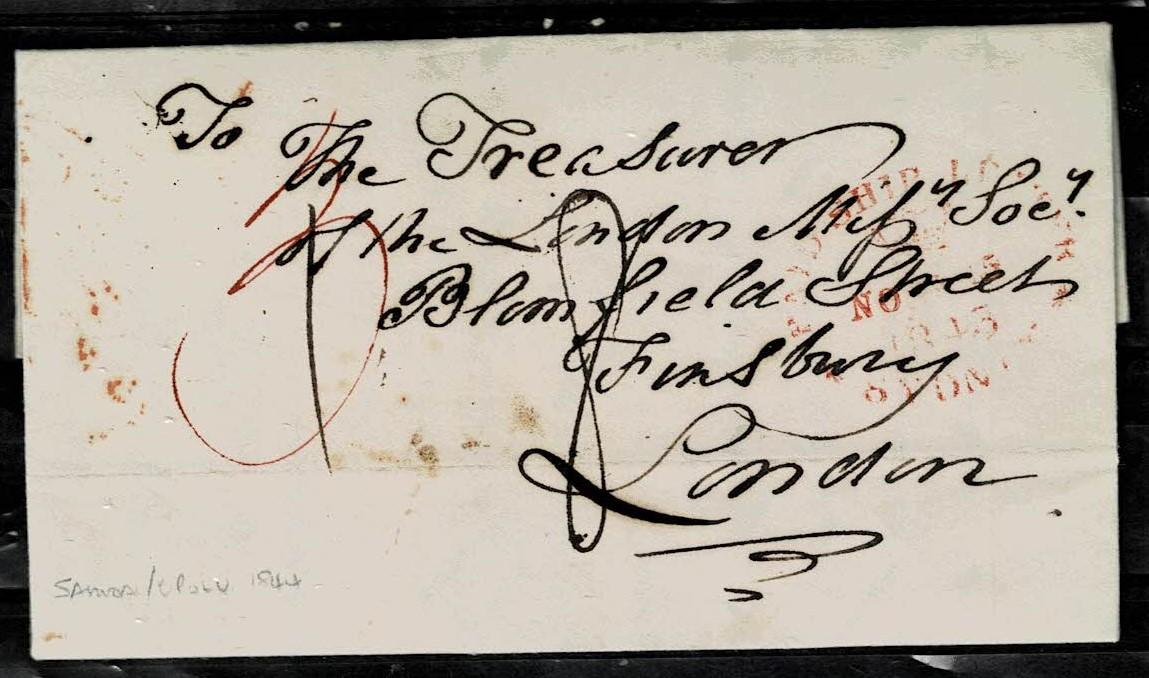 To
The Treasurer
of the London Missy Socy.
Blomfield Street
Finsbury
London
SHIP
NO
SAMOA/UPOLU 1844